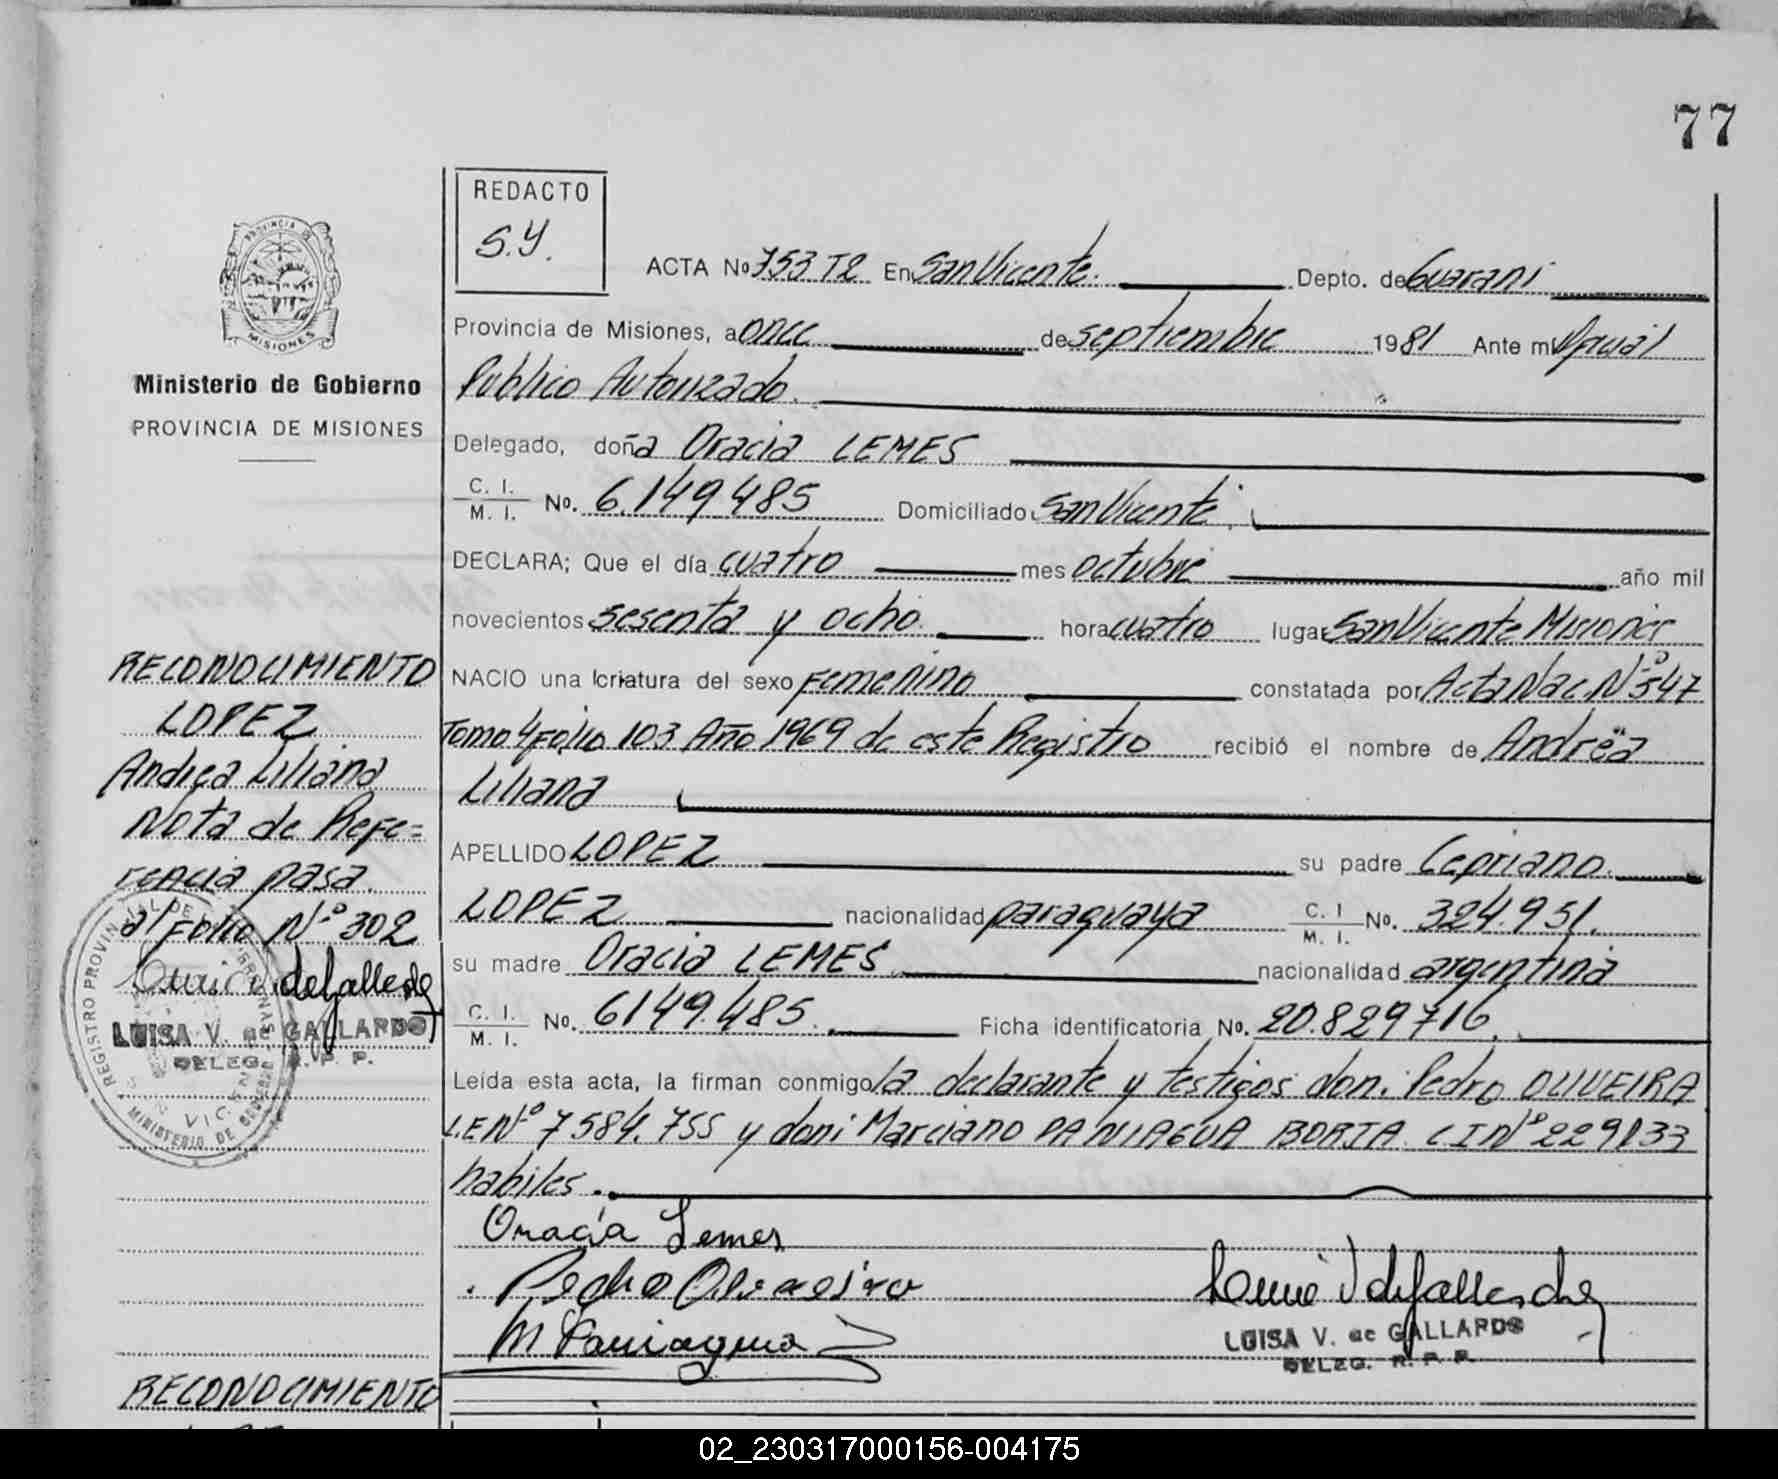 77
REDACTO
S.Y.
PROVINCIA DE
MISIONES
Ministerio de Gobierno
PROVINCIA DE MISIONES
ACTA No 753 T2 En San Vicente. Depto. de Guarani
Provincia de Misiones, a once de septiembre 1981 Ante mi Oficial
Publico Autorizado.
Delegado, doña Oracia LEMES
C. I.
M. I. No. 6.149485 Domiciliado San Vicente
DECLARA; Que el día cuatro mes octubre año mil
novecientos sesenta y ocho. hora cuatro lugar San Vicente Misiones
NACIO una criatura del sexo Femenino constatada por Acta Nac. Nº 547
Tomo 4 Folio 103 Año 1969 de este Registro recibió el nombre de Andrea
Liliana
APELLIDO LOPEZ su padre Cepriano.
LOPEZ nacionalidad paraguaya C. I
M. I. No. 324.951.
su madre Oracia LEMES nacionalidad argentina
C. I.
M. I. No. 6149.485. Ficha identificatoria No. 20.829716.
Leída esta acta, la firman conmigo la declarante y testigos don: Pedro OLIVEIRA
L.E Nº 7584.755 y don: Marciano PANIAGUA BORJA C I Nº 229133
habiles.
Oracia Lemes
Pedro Oliveira
M Paniagua
LUISA V. de GALLARDO
DELEG. R. P. P.
RECONOCIMIENTO
LOPEZ
Andrea Liliana
Nota de Refe=
rencia pasa
al Folio Nº 302
LUISA V. de GALLARDO
DELEG. R. P. P.
REGISTRO PROVINCIAL DE LAS PERSONAS
MINISTERIO DE GOBIERNO
RECONOCIMIENTO
02_230317000156-004175